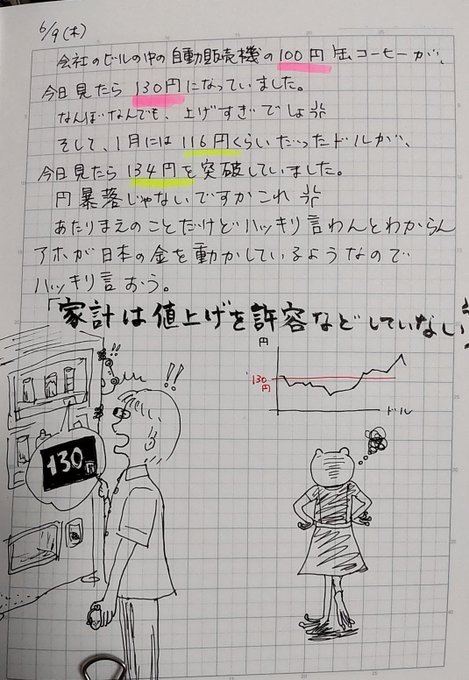 6/9(木)
会社のビルの中の自動販売機の100円缶コーヒーが、
今日見たら130円になっていました。
なんぼなんでも、上げすぎでしょ
そして、1月には116円くらいだったドルが、
今日見たら134円を突破していました。
円暴落じゃないですかこれ
あたりまえのことだけどハッキリ言わんとわからん
アホが日本の金を動かしているようなので
ハッキリ言おう。
「家計は値上げを許容などしていない」
!!
!!
円
130円
ドル
130円